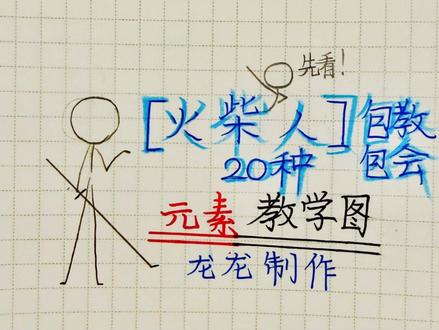 先看!
[火柴人]包教
20种 包会
元素教学图
龙龙制作